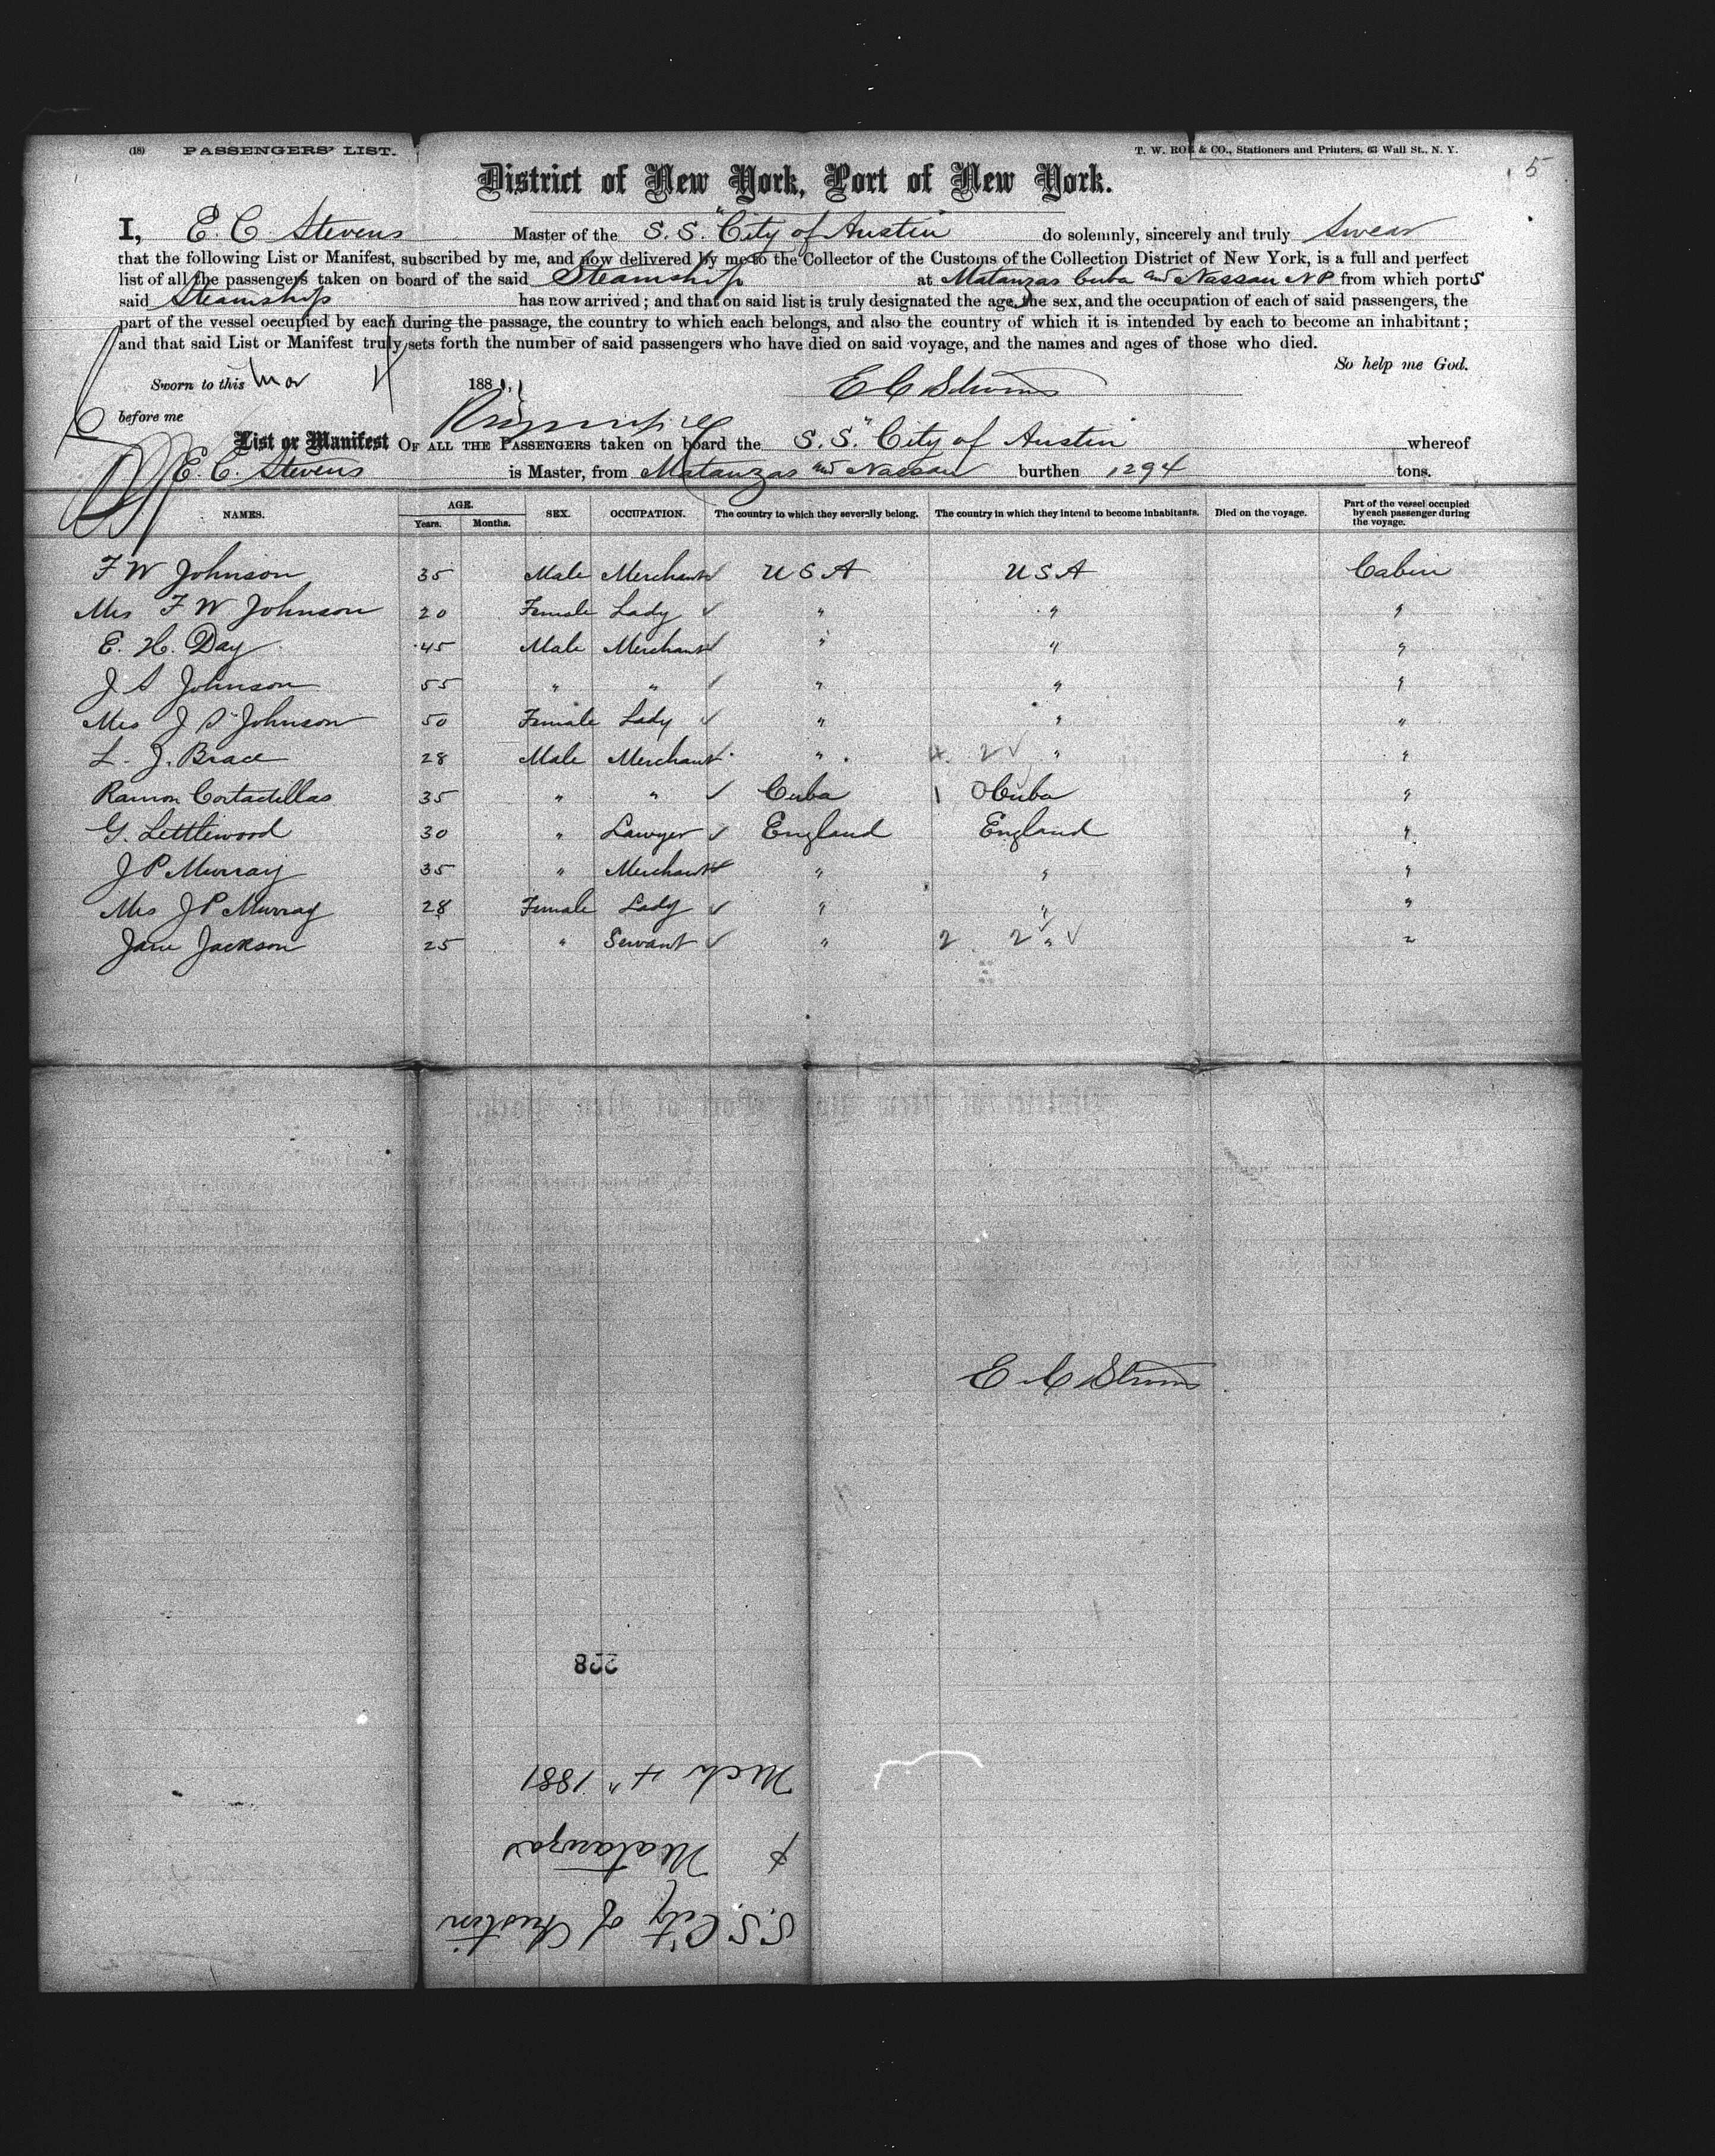 (18) PASSENGERS' LIST. T. W. ROE & CO., Stationers and Printers, 63 Wall St., N. Y.
5
District of New York, Port of New York.
I, E. C. Stevens Master of the S. S. "City of Austin" do solemnly, sincerely and truly Swear
that the following List or Manifest, subscribed by me, and now delivered by me to the Collector of the Customs of the Collection District of New York, is a full and perfect
list of all the passengers taken on board of the said Steamship at Matanzas Cuba and Nassau N P from which ports
said Steamship has now arrived; and that on said list is truly designated the age, the sex, and the occupation of each of said passengers, the
part of the vessel occupied by each during the passage, the country to which each belongs, and also the country of which it is intended by each to become an inhabitant;
and that said List or Manifest truly sets forth the number of said passengers who have died on said voyage, and the names and ages of those who died.
So help me God.
Sworn to this Mar 4 1881, E C Stevens
before me
List or Manifest OF ALL THE PASSENGERS taken on board the S. S. "City of Austin whereof
E. C. Stevens is Master, from Matanzas and Nassau burthen 1294 tons.
NAMES. AGE. Years. Months. SEX. OCCUPATION. The country to which they severally belong. The country in which they intend to become inhabitants. Died on the voyage. Part of the vessel occupied by each passenger during the voyage.
F W Johnson 35 Male Merchant USA USA Cabin
Mrs F W Johnson 20 Female Lady " " "
E. H. Day 45 Male Merchant " " "
J S Johnson 55 " " " " "
Mrs J S Johnson 50 Female Lady " " "
L. J. Brace 28 Male Merchant " 4 2 " "
Ramon Cortadellas 35 " " Cuba 1 0 Cuba "
G. Littlewood 30 " Lawyer England England "
J P Murray 35 " Merchant " " "
Mrs J P Murray 28 Female Lady " " "
Jane Jackson 25 " Servant " 2 2 " "
E C Stevens
228
Mch 4" 1881
Matanzas
S.S. City of Austin